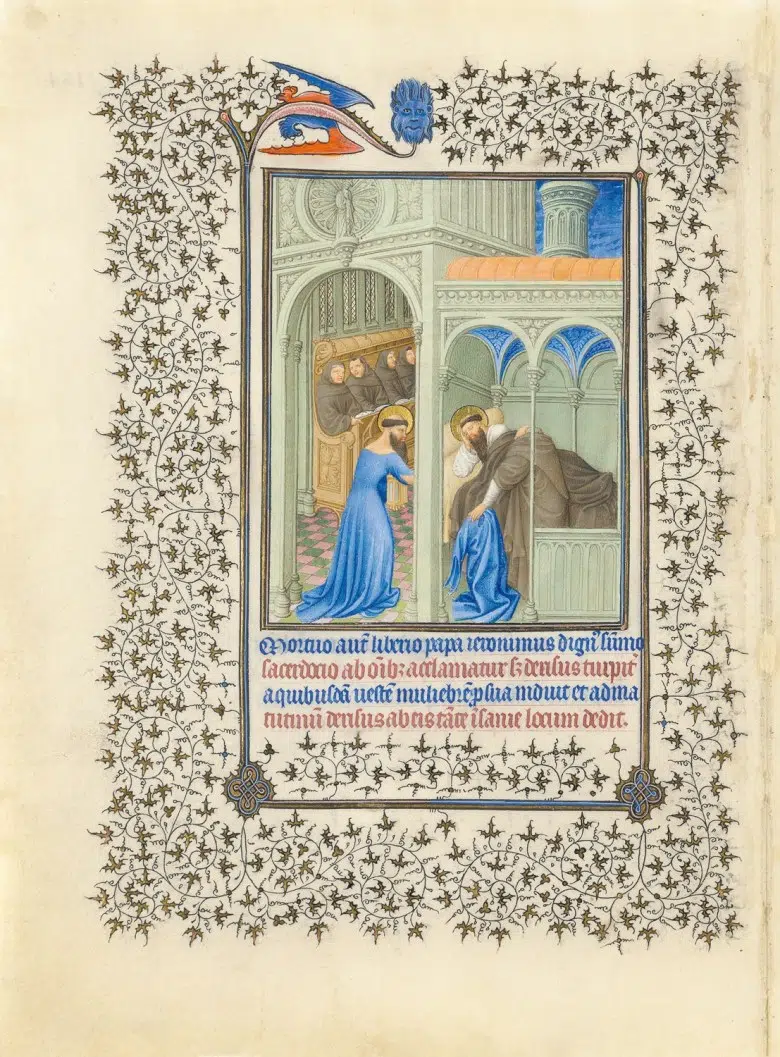 Mortuo aut̄ liberio papa ieronimus dignꝰ sūmo
sacerdocio ab oībꝫ acclamatur sꝫ derisus turpit̄
a quibusdā uestē muliebrē p̄ sua induit et ad ma
tutinū derisus ab eis tāte īsanie locum dedit.